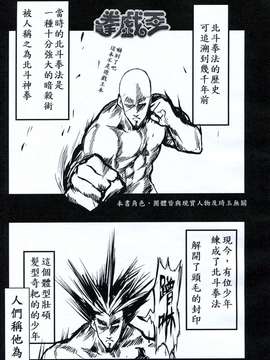 拳戲王
北斗拳法的歷史
可追溯到幾千年前
當時的北斗拳法是
一種十分強大的暗殺術
被人稱之為北斗神拳
本書角色，團體皆與現實人物及琦玉無關
現今，有位少年
練成了北斗拳法
解開了頭毛的封印
這個體型壯碩
髮型奇粑的的少年
人們稱他為